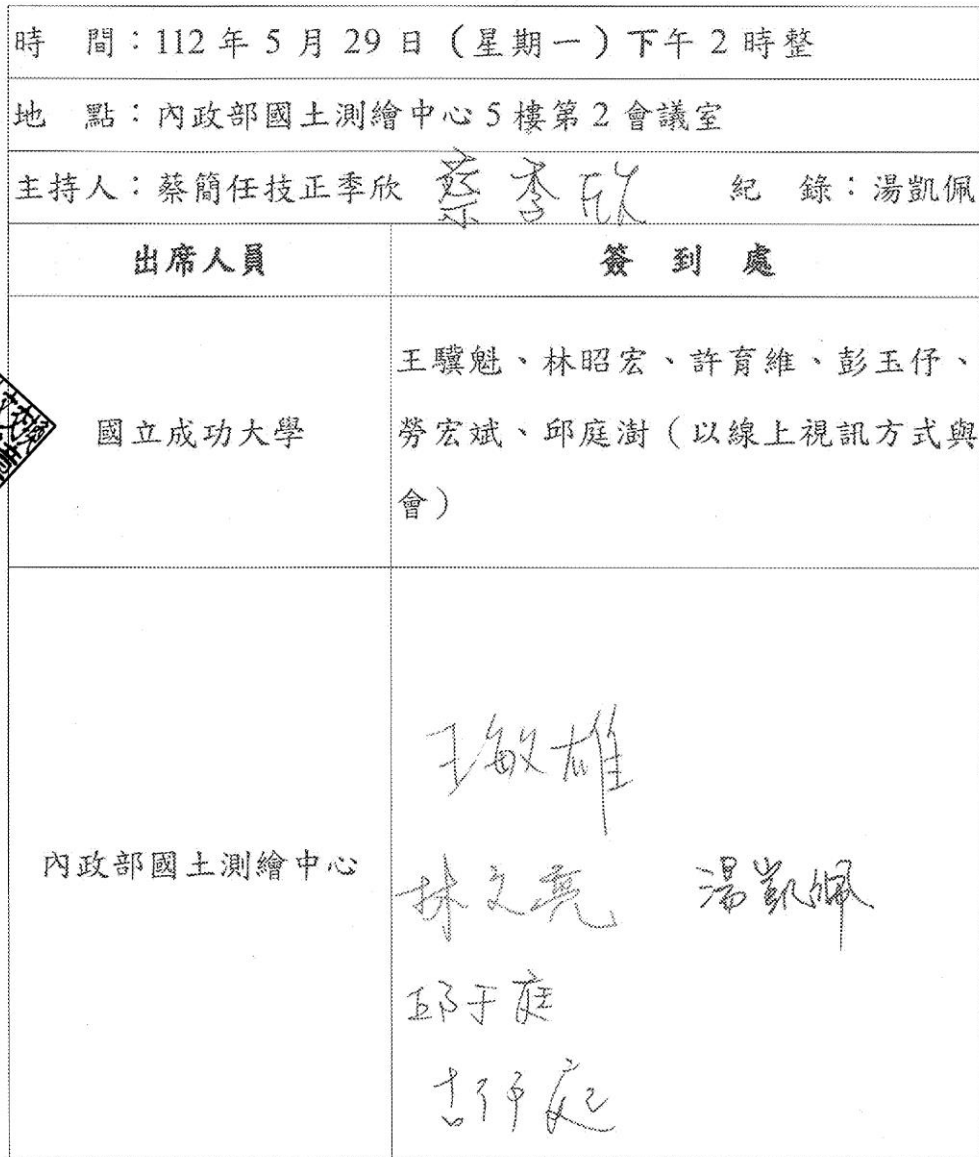 時 間：112 年 5 月 29 日（星期一）下午 2 時整
地 點：內政部國土測繪中心 5 樓第 2 會議室
主持人：蔡簡任技正季欣 蔡季欣 紀 錄：湯凱佩
出席人員 簽 到 處
王驥魁、林昭宏、許育維、彭玉伃、
國立成功大學 勞宏斌、邱庭澍（以線上視訊方式與
會）
王敏雄
內政部國土測繪中心
林文亮 湯凱佩
邱于庭